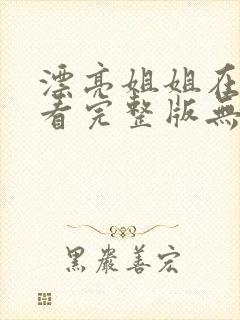 漂亮姐姐在
看完整版無
黑嚴善宏